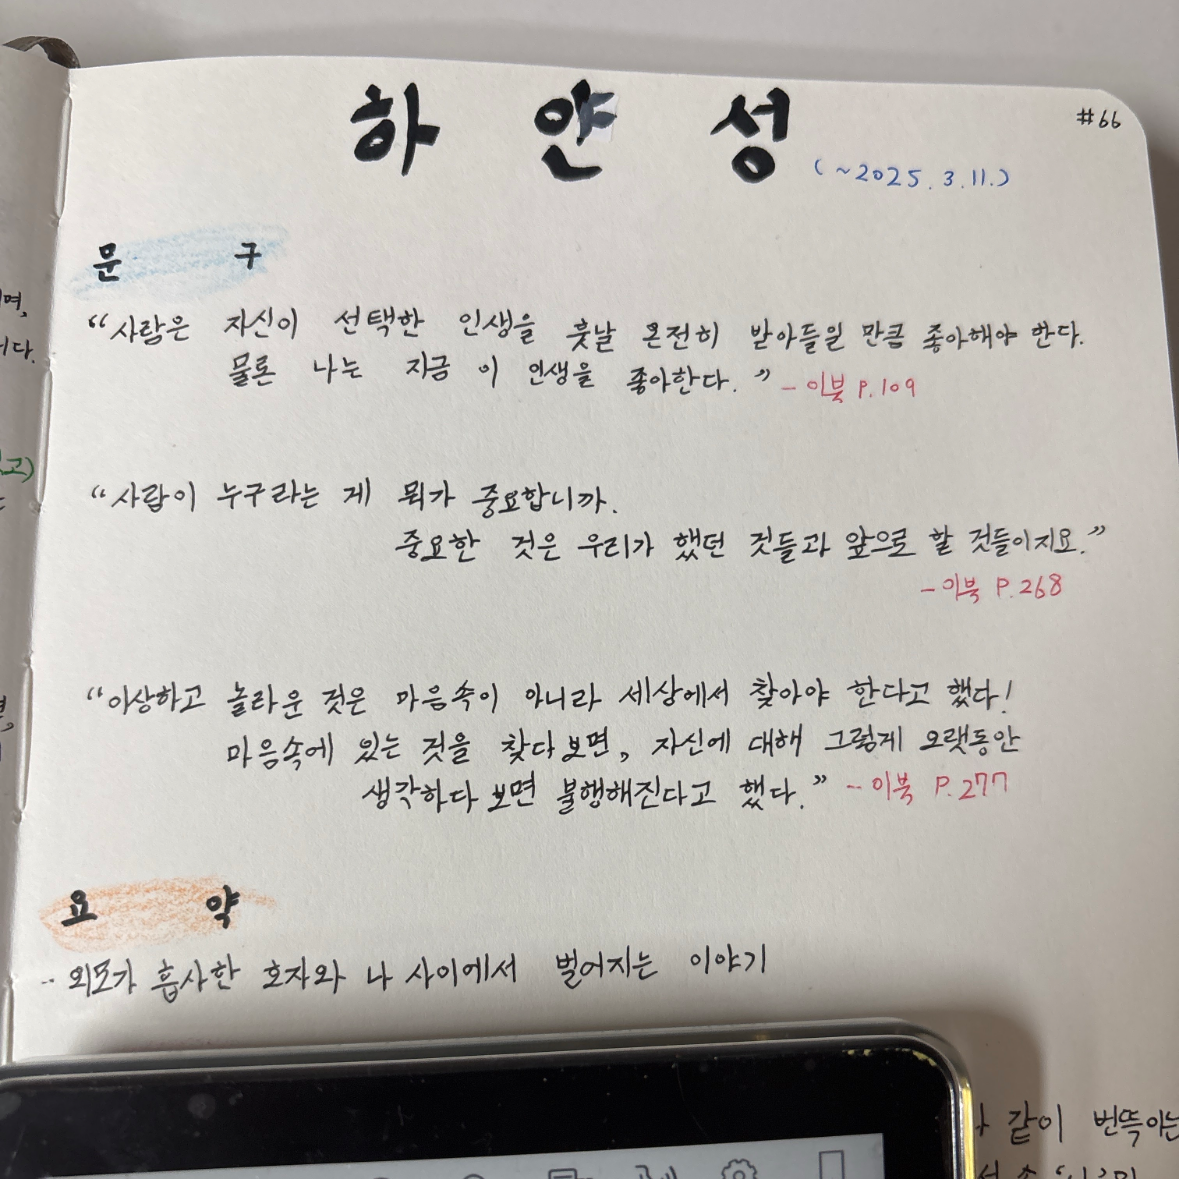 하얀성
#66
(~2025.3.11.)
문구
"사람은 자신이 선택한 인생을 훗날 온전히 받아들일 만큼 좋아해야 한다.
물론 나는 지금 이 인생을 좋아한다." - 이북 P.109
"사람이 누구라는 게 뭐가 중요합니까.
중요한 것은 우리가 했던 것들과 앞으로 할 것들이지요."
- 이북 P.268
"이상하고 놀라운 것은 마음속이 아니라 세상에서 찾아야 한다고 했다!
마음속에 있는 것을 찾다보면, 자신에 대해 그렇게 오랫동안
생각하다 보면 불행해진다고 했다." - 이북 P.277
요약
- 외모가 흡사한 호자와 나 사이에서 벌어지는 이야기
같이 번뜩이는